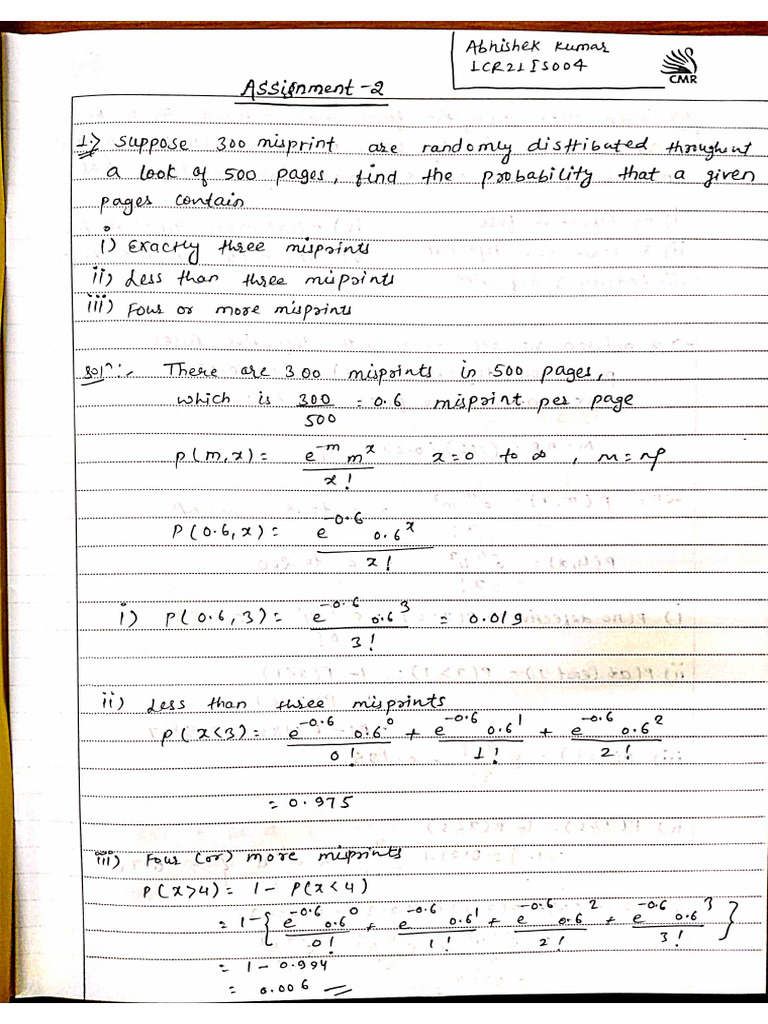 Abhishek Kumar
1CR21IS004
CMR
Assignment-2
1.> Suppose 300 misprint are randomly distributed throughout
a look of 500 pages, find the probability that a given
pages contain
i) Exactly three misprints
ii) Less than three misprints
iii) Four or more misprints
Solⁿ:- There are 300 misprints in 500 pages,
which is 300/500 = 0.6 misprint per page
P(m,x) = e^-m m^x / x! x=0 to ∞, m=np
P(0.6,x) = e^-0.6 0.6^x / x!
i) P(0.6,3) = e^-0.6 0.6^3 / 3! = 0.019
ii) Less than three misprints
P(x<3) = e^-0.6 0.6^0 / 0! + e^-0.6 0.6^1 / 1! + e^-0.6 0.6^2 / 2!
= 0.975
iii) Four (or) more misprints
P(x>4) = 1 - P(x<4)
= 1-{ e^-0.6 0.6^0 / 0! + e^-0.6 0.6^1 / 1! + e^-0.6 0.6^2 / 2! + e^-0.6 0.6^3 / 3! }
= 1 - 0.994
= 0.006